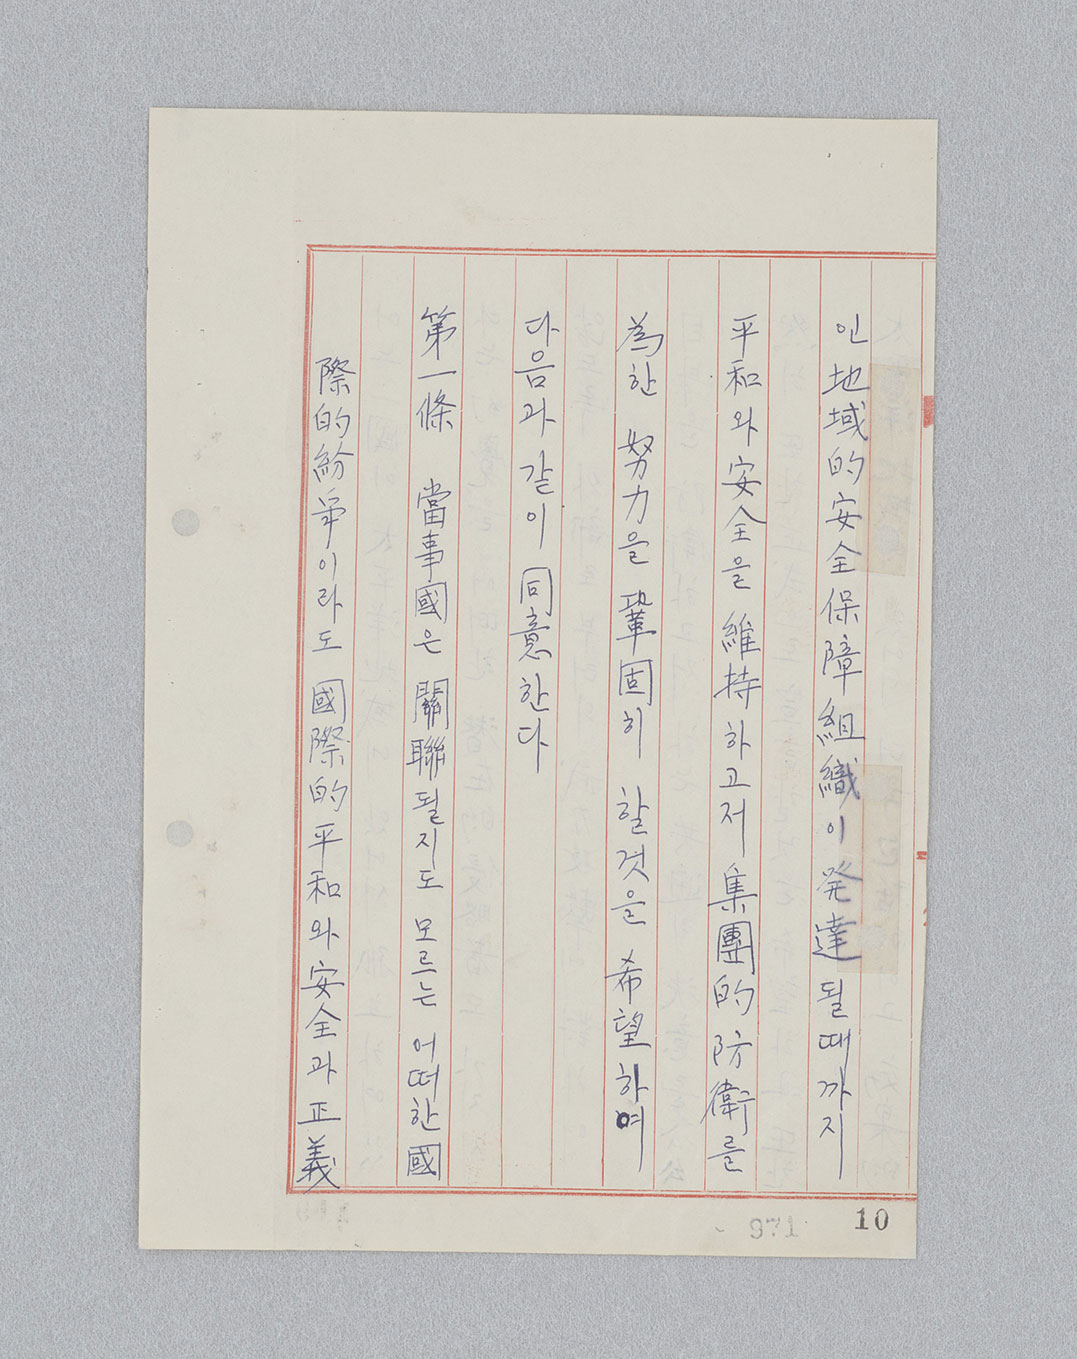 인 地域的 安全保障組織이 発達될때까지
平和와 安全을 維持하고저 集團的 防衛를
為한 努力을 鞏固히 할것을 希望하여
다음과 같이 同意한다
第一條 當事國은 關聯될지도 모르는 어떠한 國
際的 紛争이라도 國際的 平和와 安全과 正義
971
10